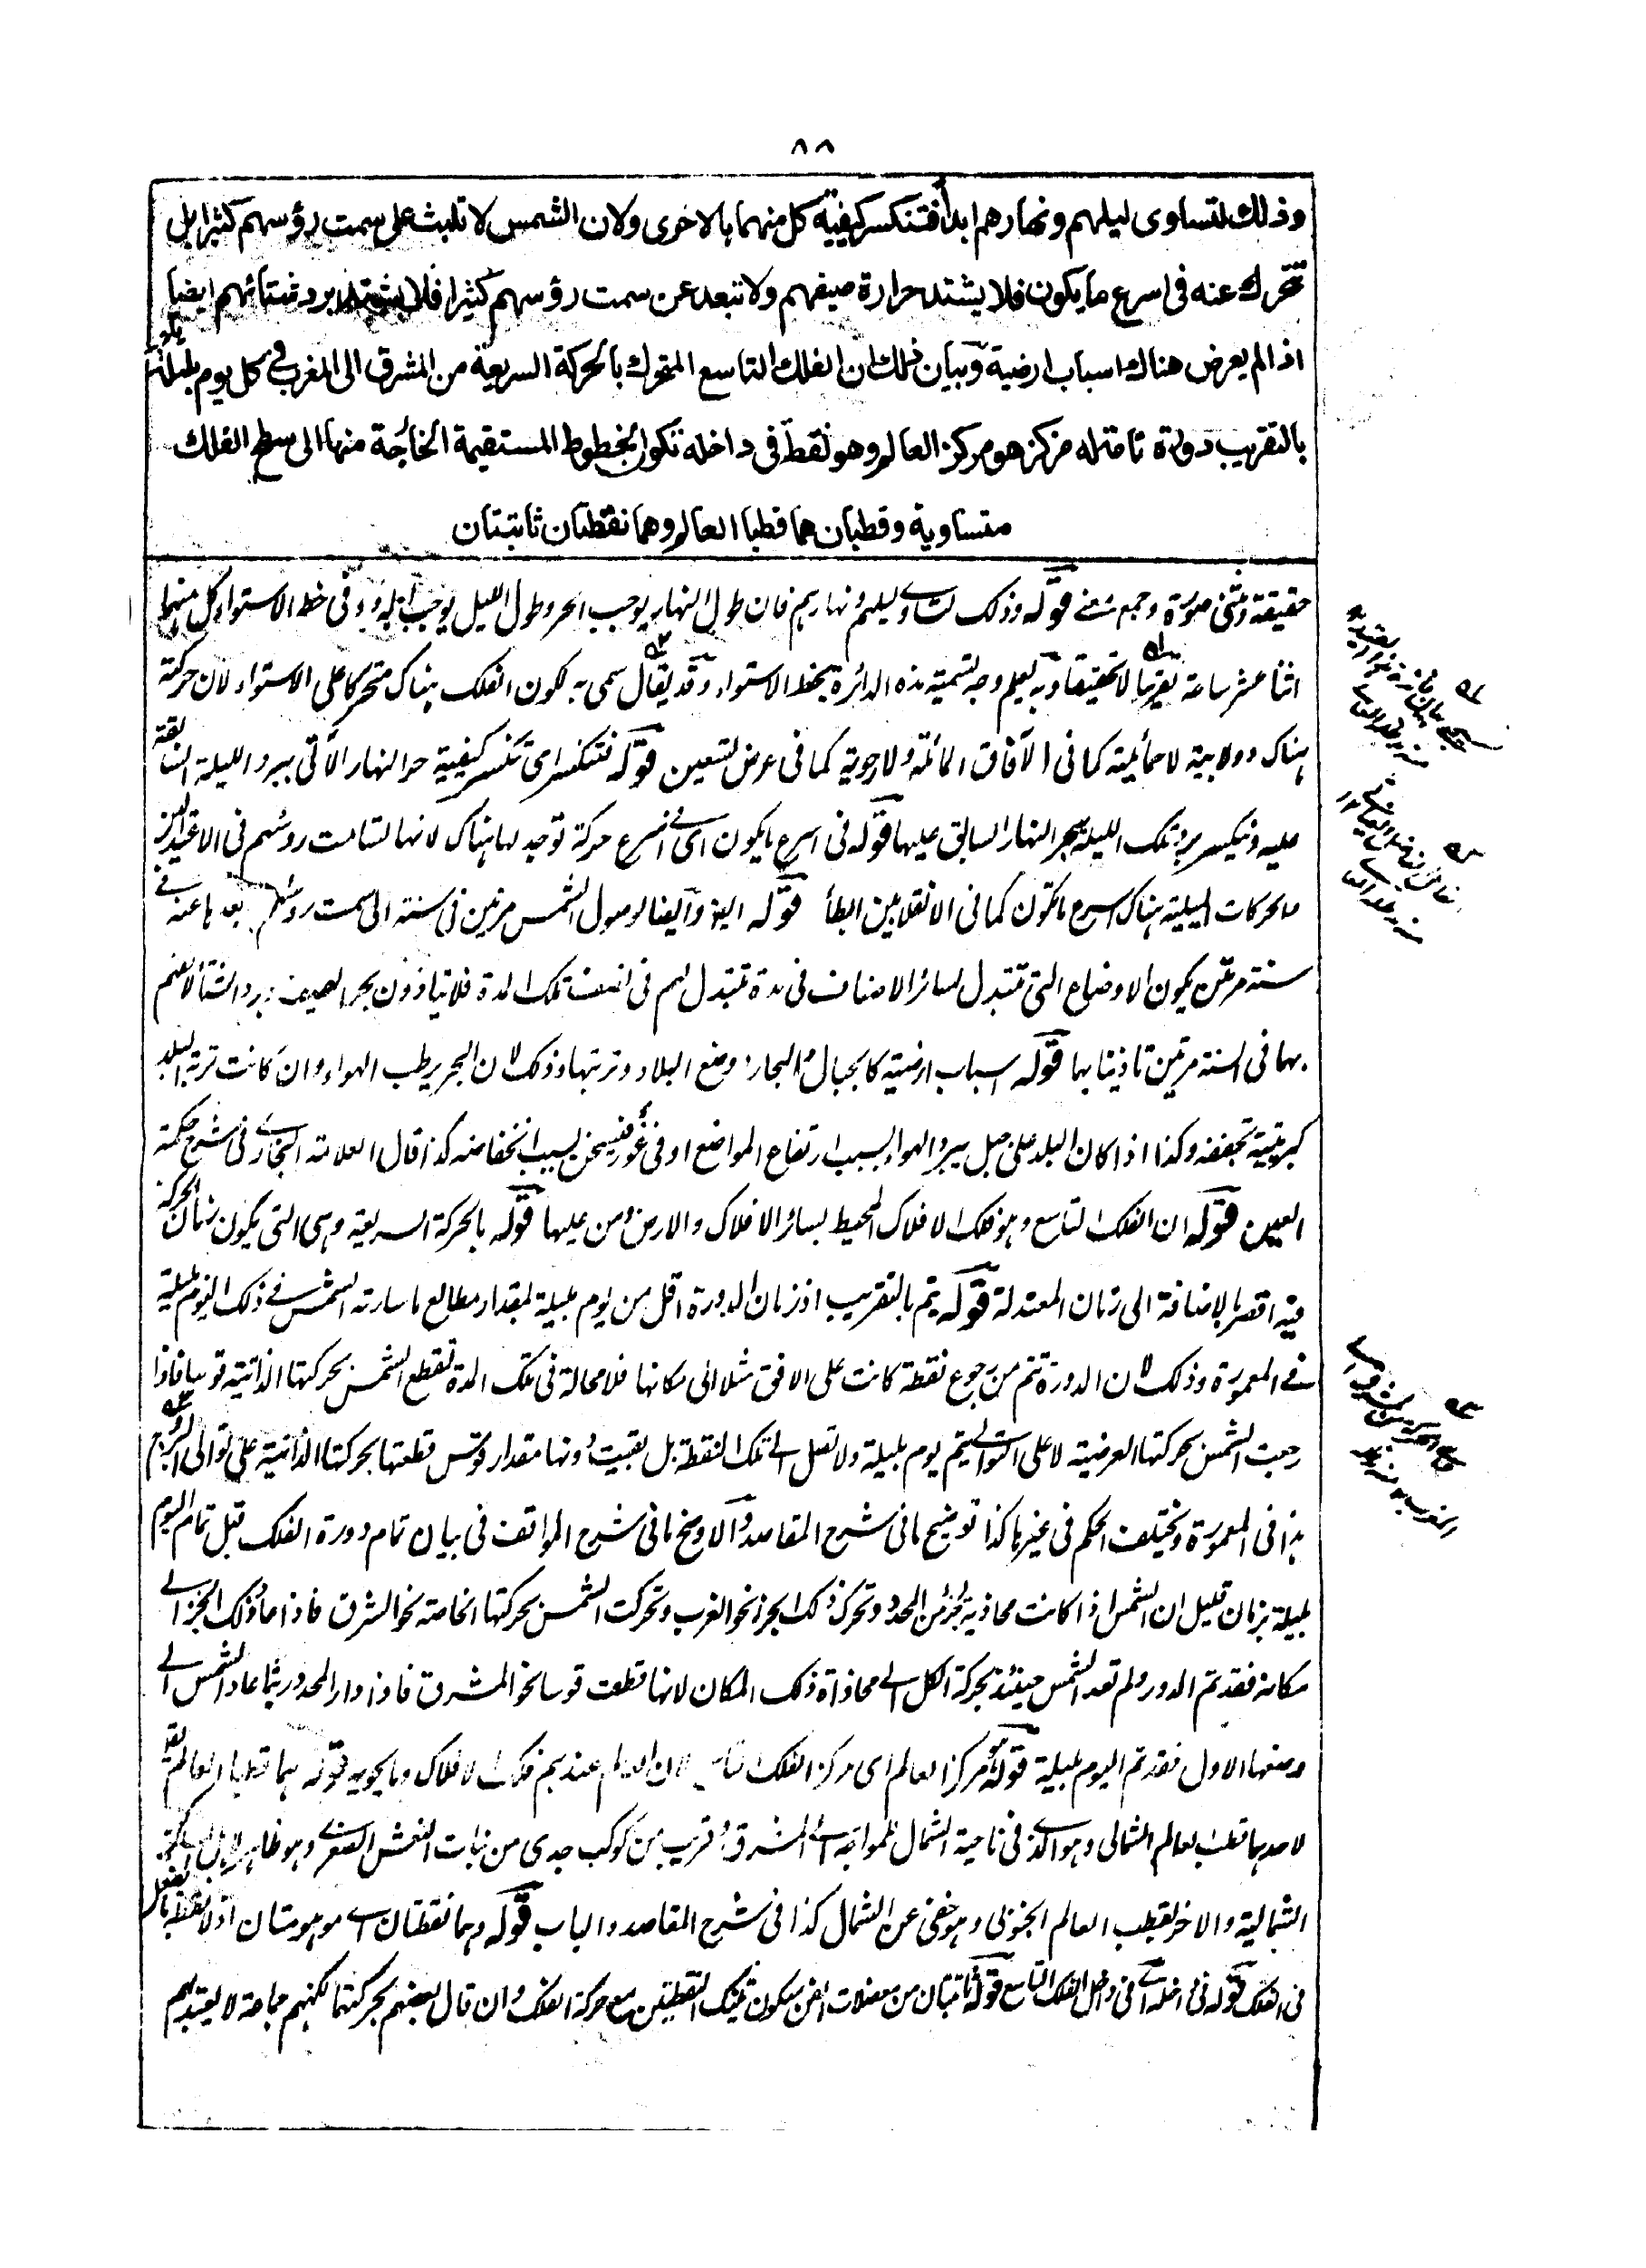 ٨٨
وذلك لتساوى ليلهم ونهارهم ابدا فتنكسر كيفية كل منهما بالاخرى ولان الشمس لا تلبث على سمت رؤسهم كثيرا بل
تتحرك عنه فى اسرع ما يكون فلا يشتد حرارة صيفهم ولا تبعد عن سمت رؤسهم كثيرا فلا يشتد برد شتائهم ايضا
اذا لم يعرض هناك اسباب ارضية وبيان ذلك ان الفلك التاسع المتحرك بالحركة السريعة من المشرق الى المغرب فى كل يوم بليلته
بالتقريب دورة تامة له مركز هو مركز العالم وهو نقطة فى داخله تكون الخطوط المستقيمة الخارجة منها الى سطح الفلك
متساوية وقطبان هما قطبا العالم وهما نقطتان ثابتتان
حقيقة ومثنى صورة وجمع معنى قوله وذلك لتساوى ليلهم ونهارهم فان طول النهار يوجب الحر وطول الليل يوجب البرد وفى خط الاستواء كل منهما
اثنا عشر ساعة تقريبا لا تحقيقا وبه يعلم وجه تسمية هذه الدائرة بخط الاستواء وقد يقال سمى به لكون الفلك هناك متحركا على الاستواء لان حركة
هناك دولابية لا حمائلية كما فى الآفاق المائلة ولا رحوية كما فى عرض تسعين قوله فتنكسر اى تنكسر كيفية حر النهار الآتى ببرد الليلة السابقة
عليه وينكسر برد تلك الليلة بحر النهار السابق عليها قوله فى اسرع ما يكون اى فى اسرع حركة توجد لها هناك لانها تسامت رؤسهم فى الاعتدالين
والحركات الميلية هناك اسرع ما تكون كما فى الانقلابين ابطأ قوله ايضا وايضا لوصول الشمس مرتين فى سنة الى سمت رؤسهم بعدها عنه فى
سنة مرتين يكون الاوضاع التى تتبدل لسائر الاصناف فى مدة تتبدل لهم فى نصف تلك المدة فلا يتاذون بحر الصيف وبرد الشتاء لانهم
بها فى السنة مرتين تاذيا بها قوله اسباب ارضية كالجبال والبحار ووضع البلاد وتربتها وذلك لان البحر يرطب الهواء وان كانت تربة البلد
كبريتية تجففه وكذا اذا كان البلد على جبل يبرد الهواء بسبب ارتفاع المواضع او فى غور فيسخن بسبب انخفاضه كذا قال العلامة البخارى فى شرح حكمة
العين قوله ان الفلك التاسع وهو فلك الافلاك المحيط بسائر الافلاك والارض ومن عليها قوله بالحركة السريعة وهى التى يكون زمان الحركة
فيه اقصر بالاضافة الى زمان المعتدلة قوله يتم بالتقريب اذ زمان الدورة اقل من يوم بليلة بمقدار مطالع ما سارته الشمس فى ذلك اليوم بليلة
فى المعمورة وذلك لان الدورة تتم من رجوع نقطة كانت على الافق مثلا الى مكانها فلا محالة فى تلك المدة تقطع الشمس بحركتها الذاتية قوسا فاذا
رجعت الشمس بحركتها العرضية لا على التوالى يتم يوم بليلة ولا تصل الى تلك النقطة بل بقيت دونها مقدار قوس قطعتها بحركتها الذاتية على توالى البروج
هذا فى المعمورة ويختلف الحكم فى غيرها كذا توضيح ما فى شرح المقاصد والاوضح ما فى شرح المواقف فى بيان تمام دورة الفلك قبل تمام اليوم
بليلة بزمان قليل ان الشمس اذا كانت محاذية لجزء من المحدد وتحرك ذلك الجزء نحو الغرب وتحركت الشمس بحركتها الخاصة نحو الشرق فاذا عاد ذلك الجزء الى
مكانه فقد تم الدور ولم تعد الشمس حينئذ بحركة الكل الى محاذاة ذلك المكان لانها قطعت قوسا نحو المشرق فاذا دار المحدد ريثما عاد الشمس الى
وضعها الاول فقد تم اليوم بليلة قوله مركز العالم اى مركز الفلك التاسع لان العالم عندهم فلك الافلاك وما يحويه قوله هما قطبا العالم يقال
لاحدهما قطب العالم الشمالى وهو الذى فى ناحية الشمال للمواجه الى المشرق وقريب من كوكب جدى من بنات النعش الصغرى وهو ظاهر
الشمالية والاخر لقطب العالم الجنوبى وهو خفى عن الشمال كذا فى شرح المقاصد والباب قوله وهما نقطتان اى موهومتان اذ لا نقطة بالفعل
فى الفلك قوله فى داخله اى فى داخل الفلك التاسع قوله ثابتتان من معضلات الفن سكون تينك النقطتين مع حركة الفلك وان قال بعضهم بحركتهما لكنهم جماعة لا يعتد بهم